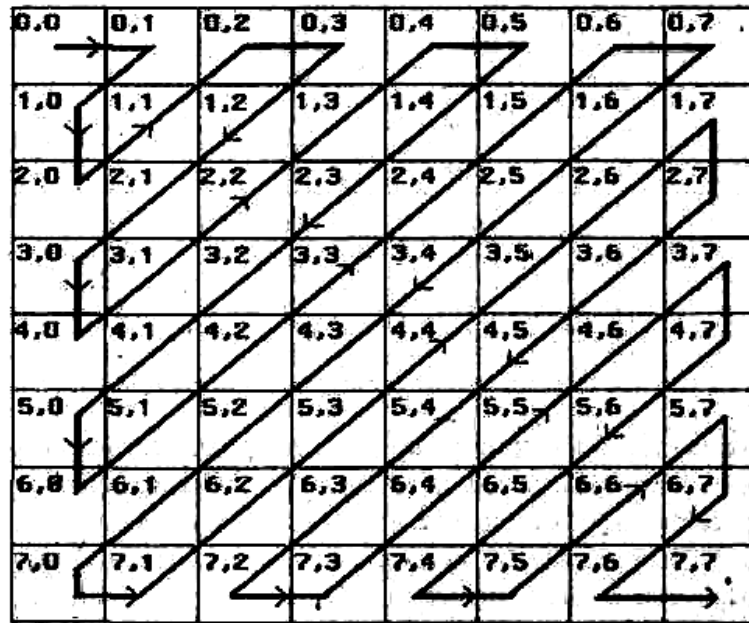 0,0 0,1 0,2 0,3 0,4 0,5 0,6 0,7
1,0 1,1 1,2 1,3 1,4 1,5 1,6 1,7
2,0 2,1 2,2 2,3 2,4 2,5 2,6 2,7
3,0 3,1 3,2 3,3 3,4 3,5 3,6 3,7
4,0 4,1 4,2 4,3 4,4 4,5 4,6 4,7
5,0 5,1 5,2 5,3 5,4 5,5 5,6 5,7
6,0 6,1 6,2 6,3 6,4 6,5 6,6 6,7
7,0 7,1 7,2 7,3 7,4 7,5 7,6 7,7